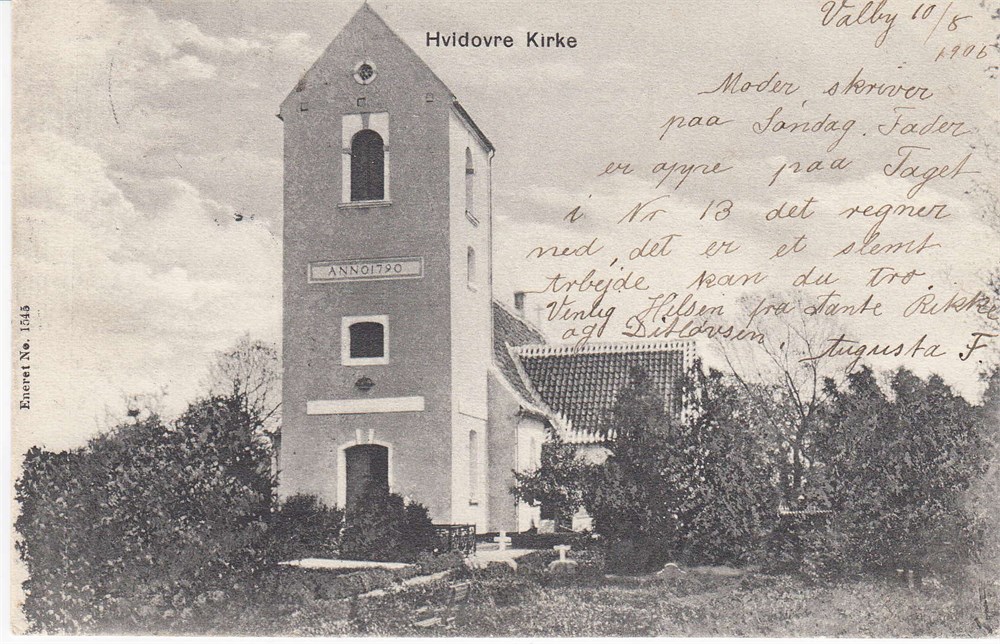 Hvidovre Kirke
Valby 10/8
1906
Moder, skriver
paa Søndag. Fader
er oppe paa Taget
i Nr 13 det regner
ned, det er et slemt
Arbejde kan du tro.
Venlig Hilsen fra Tante Rikke
og Ditlovsen.
Augusta F.
ANNO 1790
Eneret No. 1545